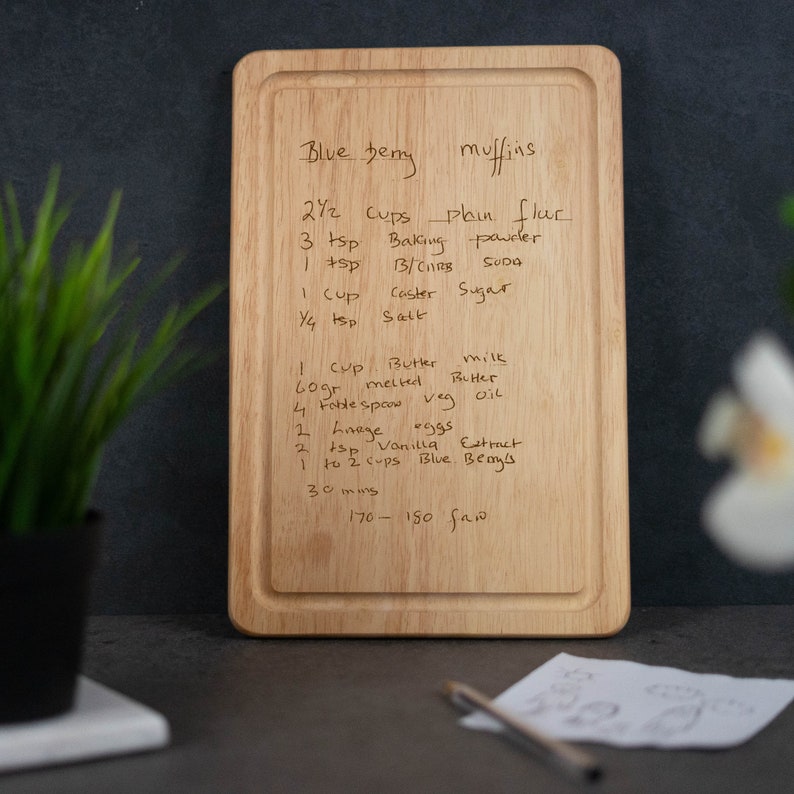 Blue berry muffins
2½ cups plain flour
3 tsp Baking powder
1 tsp B/CARB SODA
1 cup Caster Sugar
¼ tsp Salt
1 cup Butter milk
60gr melted Butter
4 tablespoon veg oil
2 LARGE eggs
2 tsp Vanilla Extract
1 to 2 cups Blue Berry's
30 mins
170 - 180 fan